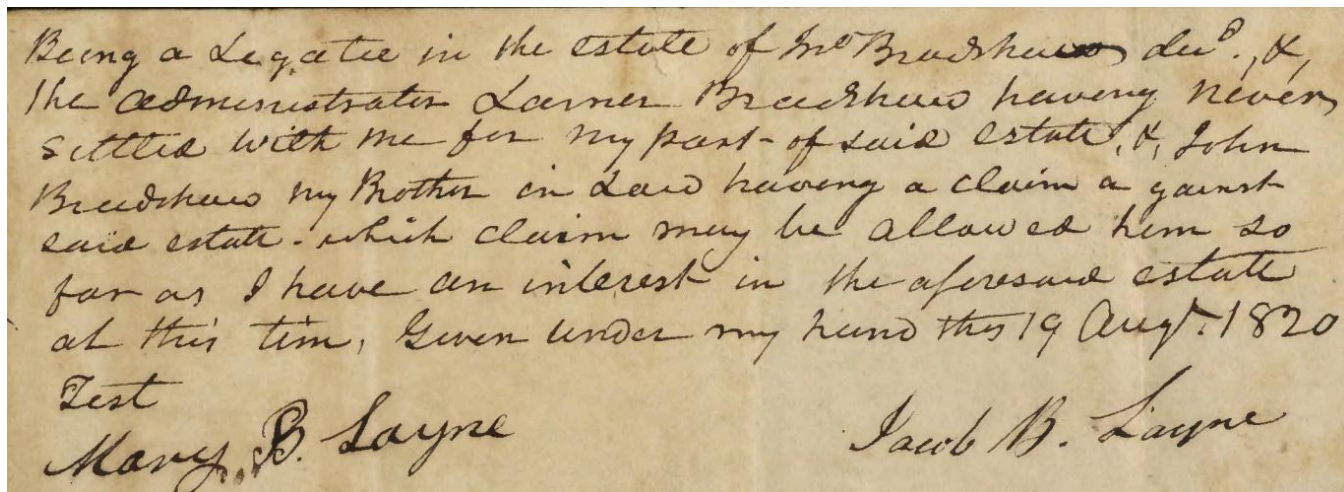 Being a Legatee in the estate of Jno Bradshaw decd., &,
the administrator Larner Bradshaw having never
settled with me for my part - of said estate, &, John
Bradshaw my Brother in Law having a claim a gainst
said estate - which claim may be allowed him so
far as I have an interest in the aforesaid estate
at this tim, Given under my hand this 19 Augt. 1820
Test
Mary B. Layne Jacob B. Layne